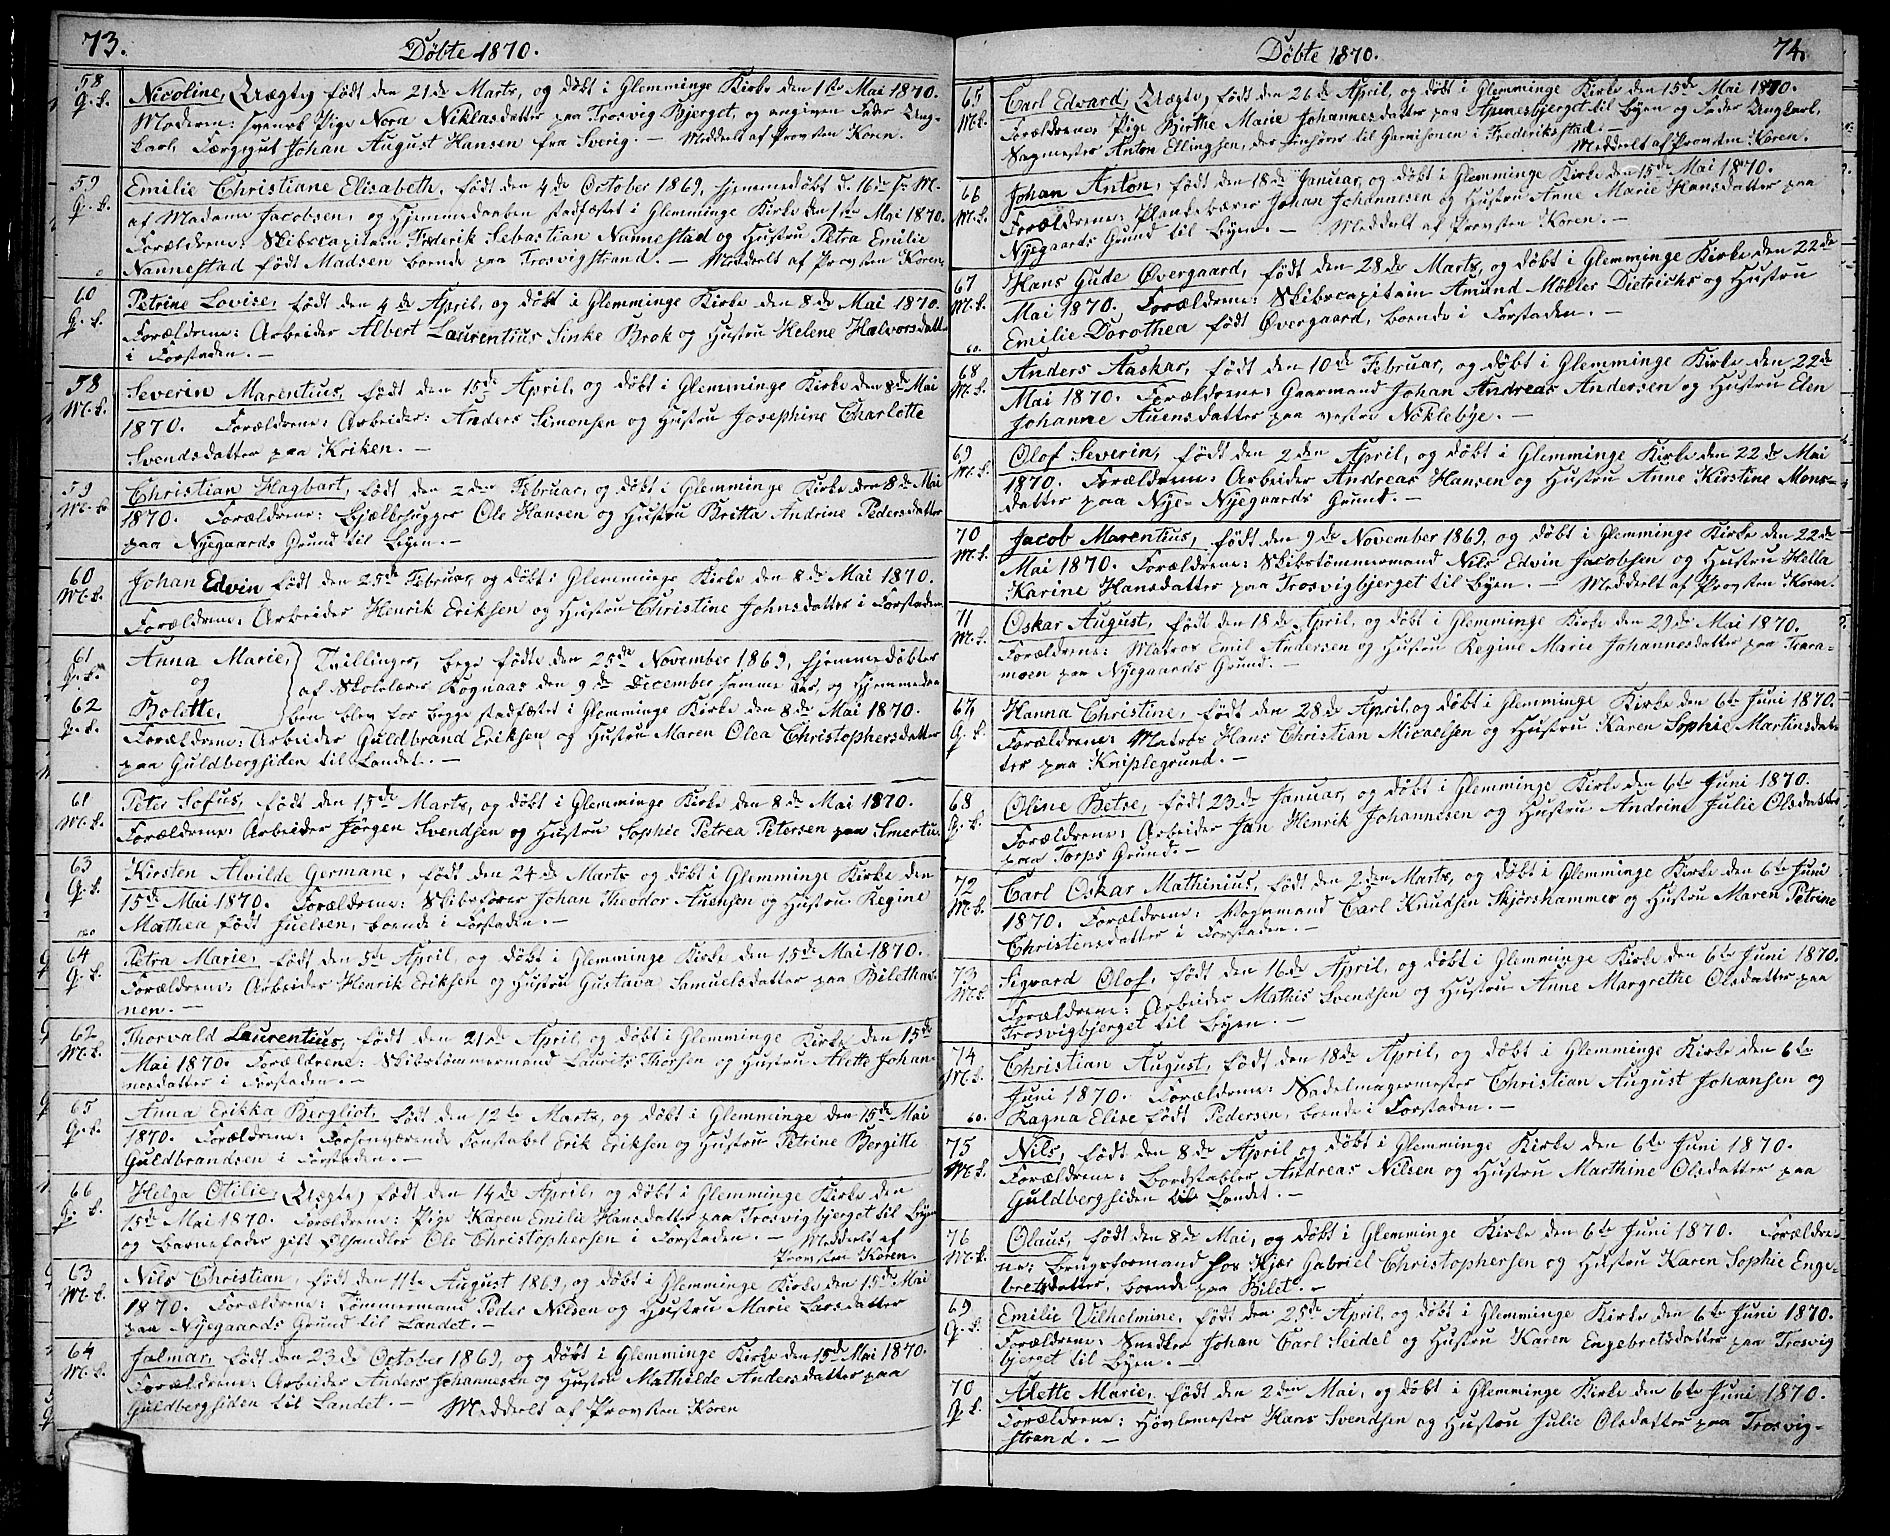 73.
Døbte 1870.
58
Q.k.
Nicoline, (Uægte) født den 21de Marts, og døbt i Glemminge Kirke den 1ste Mai 1870.
Moderen: svensk Pige Nora Niklasdatter paa Trosvig Bjerget, og angiven Fader Ung-
karl, Færgegut Johan August Hansen fra Sverig. — Meddelt af Provsten Koren.
59
Q.k.
Emilie Christiane Elisabeth, født den 4de October 1869, hjemmedøbt d. 16de s. M.
af Madame Jacobsen, og Hjemmedaaben stadfæstet i Glemminge Kirke den 1ste Mai 1870.
Forældrene: Skibscapitain Frederik Sebastian Nannestad og Hustru Petra Emilie
Nannestad født Madsen boende paa Trosvigstrand. — Meddelt af Provsten Koren.
60
Q.k.
Petrine Lovise, født den 4de April, og døbt i Glemminge Kirke den 8de Mai 1870.
Forældrene: Arbeider Albert Laurentius Sinke Brok og Hustru Helene Halvorsdatt.
i Forstaden. —
58
M.k.
Severin Marentius, født den 15de April, og døbt i Glemminge Kirke den 8de Mai
1870. Forældrene: Arbeider: Anders Simonsen og Hustru Josephine Charlotte
Svendsdatter paa Kriken. —
59
M.k.
Christian Hagbart, født den 2den Februar, og døbt i Glemminge Kirke den 8de Mai
1870. Forældrene: Bjælkehugger Ole Hansen og Hustru Britta Andrine Pedersdatter
paa Nyegaards Grund til Byen. —
60
M.k.
Johan Edvin født den 25de Februar, og døbt i Glemminge Kirke den 8de Mai 1870.
Forældrene: Arbeider Henrik Eriksen og Hustru Christine Johnsdatter i Forstaden.
61
Q.k.
Anna Marie, Tvillinger, bege fødte den 25de November 1869, hjemmedøbter
og af Skolelærer Rognaas den 9de December samme Aar, og Hjemmedaa
62
Q.k.
Bolette, ben blev for begge stadfæstet i Glemminge Kirke den 8de Mai 1870.
Forældrene: Arbeider Guldbrand Eriksen og Hustru Maren Olea Christophersdatter
paa Guldbergsiden til Landet. —
61
M.k.
Peter Sofus, født den 15de Marts, og døbt i Glemminge Kirke den 8de Mai 1870.
Forældrene: Arbeider Jørgen Svendsen og Hustru Sophie Petrea Petersen paa Smertu.
63
Q.k.
Kirsten Alvilde Germane, født den 24de Marts og døbt i Glemminge Kirke den
15de Mai 1870. Forældrene: Skibsfører Johan Theodor Auensen og Hustru Regine
Mathea født Juelsen, boende i Forstaden. —
64
Q.k.
Petra Marie, født den 5te April, og døbt i Glemminge Kirke den 15de Mai 1870.
Forældrene: Arbeider Henrik Eriksen og Hustru Gustava Samuelsdatter paa Bilethav-
nen. —
62
M.k.
Thorvald Laurentius, født den 21de April, og døbt i Glemminge Kirke den 15de
Mai 1870. Forældrene: Skibstømmermand Laurits Thorsen og Hustru Alette Johan-
nesdatter i Forstaden. —
65
Q.k.
Anna Erikka Bergliot, født den 12te Marts, og døbt i Glemminge den 15de Mai
1870. Forældrene: Forhenværende Konstabel Erik Eriksen og Hustru Petrine Bergitte
Guldbrandsen i Forstaden. —
66
Q. k.
Helga Otilie, (Uægte) født den 14de April, og døbt i Glemminge Kirke den
15de Mai 1870. Forældrene: Pige Karen Emilie Hansdatter paa Trosvigbjerget til Byen
og Barnefader gift Ølhandler Ole Christophersen i Forstaden. — Meddelt af
Provsten Koren.
63
M.k.
Nils Christian, født den 11te August 1869, og døbt i Glemminge Kirke den 15de Mai
1870. Forældrene: Tømmermand Peder Nilsen og Hustru Marie Larsdatter
paa Nyegaards Grund til Landet. —
64
M.k.
Jalmar, født den 23de October 1869, og døbt i Glemminge Kirke den 15de Mai 1870.
Forældrene: Arbeider Anders Johannesen og Hustru Mathilde Andersdatter paa
Guldbergsiden til Landet. — Meddelt af Provsten Koren
Døbte 1870.
74.
65
M.k.
Carl Edvard, (Uægte) født den 26de April, og døbt i Glemminge Kirke den 15de Mai 1870.
Forældrene: Pige Birthe Marie Johannesdatter paa til Byen og Fader Ungkarl,
Sagmester Anton Ellingsen, der henhører til Garnisonen i Frederikstad.
Meddelt af Provsten Koren.
66
M.k.
Johan Anton, født den 18de Januar, og døbt i Glemminge Kirke den 15de Mai 1870.
Forældrene: Plankebærer Johan Johannesen og Hustru Anne Marie Hansdatter paa
Nyegaards Grund til Byen. — Meddelt af Provsten Koren. —
67
M.k.
Hans Gude Øvergaard, født den 28de Marts, og døbt i Glemminge Kirke den 22de
Mai 1870. Forældrene: Skibscapitain Amund Møller Dietrichs og Hustru
60.
Emilie Dorothea født Øvergaard, boende i Forstaden. —
68
M.k.
Anders Aaskar, født den 10de Februar, og døbt i Glemminge Kirke den 22de
Mai 1870. Forældrene: Gaarmand Johan Andreas Andersen og Hustru Elen
Johanne Auensdatter paa vestre Nøklebye. —
69
M.k.
Olof Severin, født den 2den April, og døbt i Glemminge Kirke den 22de Mai
1870. Forældrene: Arbeider Andreas Hansen og Hustru Anne Kirstine Mons-
datter paa Nye-Nyegaards Grund. —
70
M.k.
Jacob Marentius, født den 9de November 1869, og døbt i Glemminge Kirke den 22de
Mai 1870. Forældrene: Skibstømmermand Nils Edvin Jacobsen og Hustru Hella
Karine Hansdatter paa Trosvigbjerget til Byen. — Meddelt af Provsten Koren.
71
M.k.
Oskar August, født den 18de April, og døbt i Glemminge Kirke den 29de Mai 1870.
Forældrene: Matros Emil Andersen og Hustru Regine Marie Johannesdatter paa Trara-
moen paa Nyegaards Grund. —
67
Q. k.
Hanna Christine, født den 28de April, og døbt i Glemminge Kirke den 6te Juni 1870.
Forældrene: Matros Hans Christian Micaelsen og Hustru Karen Sophie Martinsdat-
ter paa Kniplegrund. —
68
Q.k.
Oline Betse, født 23de Januar, og døbt i Glemminge Kirke den 6te Juni 1870.
Forældrene: Arbeider Jan Henrik Johannesen og Hustru Andrine Julie Olsdatter
paa Torps Grund. —
72
M.k.
Carl Oskar Mathinius, født den 2den Marts, og døbt i Glemminge Kirke den 6te Juni
1870. Forældrene: Vognmand Carl Knudsen Skjørshammer og Hustru Maren Petrine
Christensdatter i Forstaden. —
73
M.k.
Sigvard Olof, født den 16de April, og døbt i Glemminge Kirke den 6te Juni 1870.
Forældrene: Arbeider Mathis Svendsen og Hustru Anne Margrethe Olsdatter paa
Trosvigbjerget til Byen. —
74
M.k.
Christian August, født den 18de April, og døbt i Glemminge Kirke den 6te
Juni 1870. Forældrene: Sadelmagermester Christian August Johansen og
60.
Ragna Elise født Pedersen, boende i Forstaden. —
75
M.k.
Nils, født den 8de April og døbt i Glemminge Kirke den 6te Juni 1870.
Forældrene: Bordstabler Andreas Nilsen og Hustru Marthine Olsdatter paa
Guldbergsiden til Landet. —
76
M.k.
Olaus, født den 8de Mai, og døbt i Glemminge Kirke den 6te Juni 1870. Forældre-
ne: Brugsformand hos Kjær Gabriel Christophersen og Hustru Karen Sophie Enge-
bretsdatter, boende paa Bilet. —
69
Q.k.
Emilie Vilhelmine, født den 25de April, og døbt i Glemminge Kirke den 6te Juni 1870.
Forældrene: Snedker Johan Carl Seidel og Hustru Karen Engebretsdatter paa Trosvig
bjerget til Byen. —
70
Q k.
Alette Marie, født den 2den Mai, og døbt i Glemminge Kirke den 6te Juni 1870.
Forældrene: Høvlemester Hans Svendsen og Hustru Julie Olsdatter paa Trosvig-
strand. —